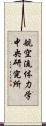 航空流体力学
中央研究所